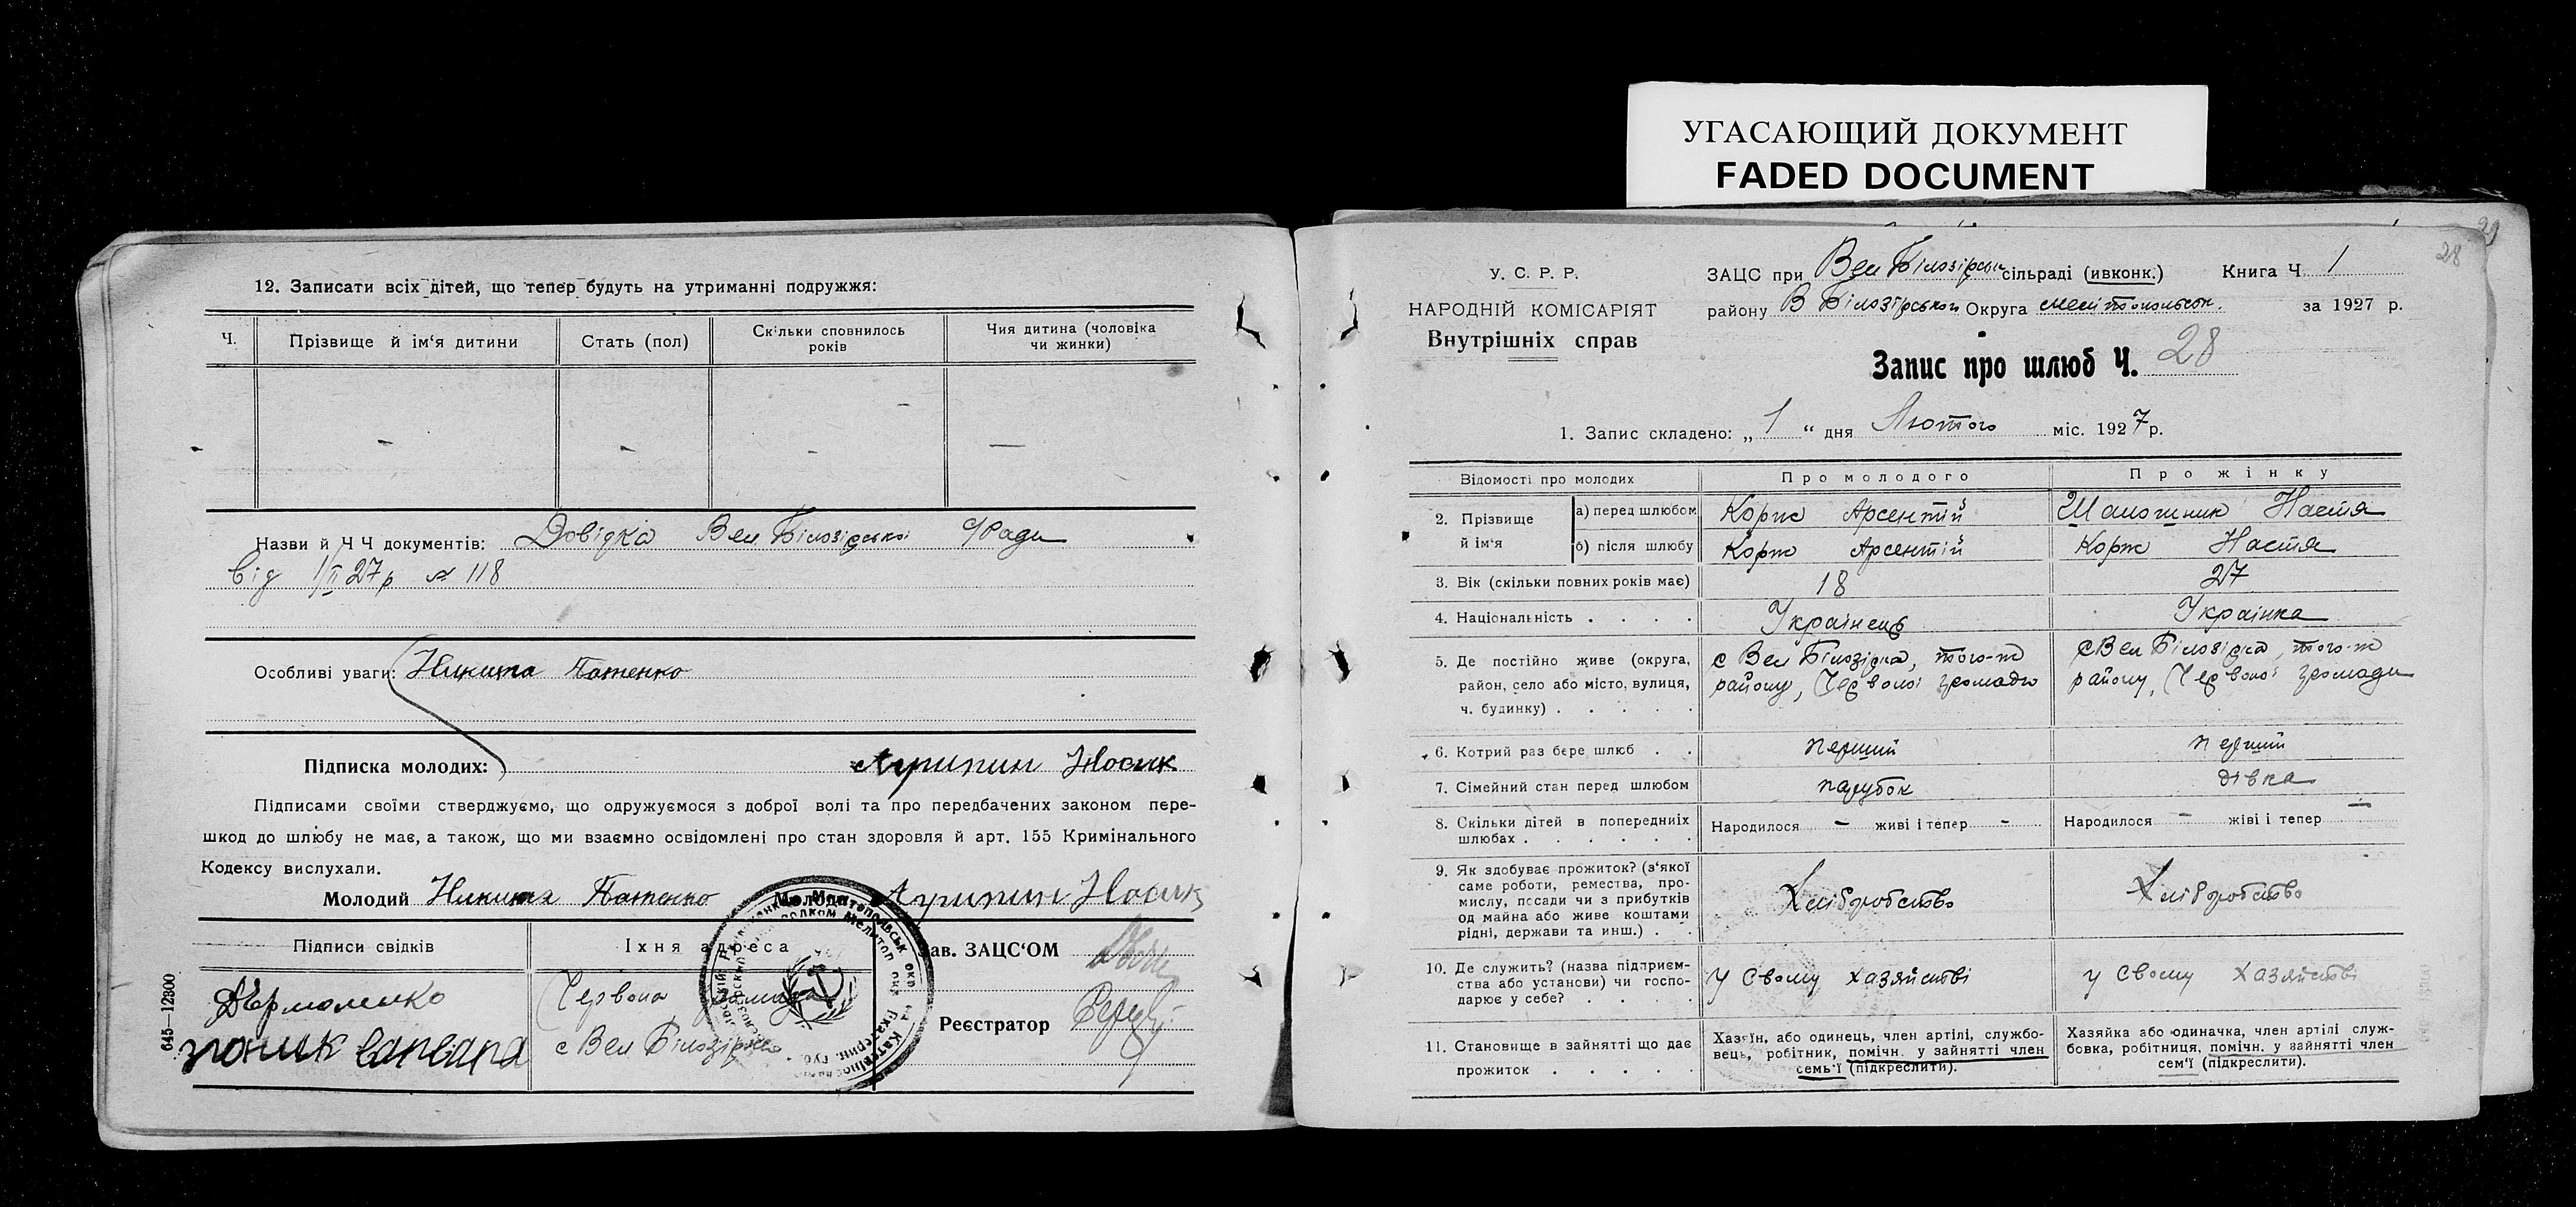 УГАСАЮЩИЙ ДОКУМЕНТ
FADED DOCUMENT
12. Записати всіх дітей, що тепер будуть на утриманні подружжя:
Ч. Прізвище й ім‘я дитини Стать (пол) Скільки сповнилось років Чия дитина (чоловіка чи жинки)
- - - —
Назви й Ч Ч документів: Довідка Вел Білозірської С/Ради
від 1/II 27р № 118
Особливі уваги: Никита Патенко
Підписка молодих: Агрипин Носик
Підписами своїми стверджуємо, що одружуємося з доброї волі та про передбачених законом пере-
шкод до шлюбу не має, а також, що ми взаємно освідомлені про стан здоровля й арт. 155 Кримінального
Кодексу вислухали.
Молодий Никита Патенко Молода Агрипин Носик
Підписи свідків Їхня адреса Зав. ЗАЦС‘ОМ
Єрмоленко Червона громада
Реєстратор
варвара с Вел Білозірка
645—12300
28
У. С. Р. Р.
НАРОДНІЙ КОМІСАРІЯТ
Внутрішніх справ
ЗАЦС при Вел Білозірськ сільраді (ивконк.) Книга Ч 1
району В Білозірської Округа мелітопольськ. за 1927 р.
Запис про шлюб Ч. 28
1. Запис складено: „ 1 “ дня Лютого міс. 1927 р.
Відомості про молодих Про молодого Про жінку
2. Прізвище й ім‘я
а) перед шлюбом Корж Арсентій Шапошник Настя
б) після шлюбу Корж Арсентій Корж Настя
3. Вік (скільки повних років має) 18 27
4. Національність . . . . Українець Українка
5. Де постійно живе (округа, с Вел Білозірка, того-ж с Вел Білозірка, того-ж
район, село або місто, вулиця, району, Червоної громади району, Червоної громади
ч. будинку) . . . . .
6. Котрий раз бере шлюб . . перший перший
7. Сімейний стан перед шлюбом парубок дівка
8. Скільки дітей в попередніх Народилося - живі і тепер - Народилося - жіві і тепер —
шлюбах . . . . . .
9. Як здобуває прожиток? (з‘якої
саме роботи, ремества, про-
мислу, посади чи з прибутків Хліборобство Хліборобство
од майна або живе коштами
рідні, держави та инш.) . .
10. Де служить? (назва підприєм-
ства або установи) чи госпо- У свому хазяйстві у свому хазяйстві
дарює у себе? . . . .
11. Становище в зайнятті що дає
прожиток . . . . .
Хазяїн, або одинець, член артілі, службо-
вець, робітник, помічн. у зайнятті член
семь‘ї (підкреслити).
Хазяйка або одиначка, член артілі служ-
бовка, робітниця, помічн. у зайнятті член
сем‘ї (підкреслити).